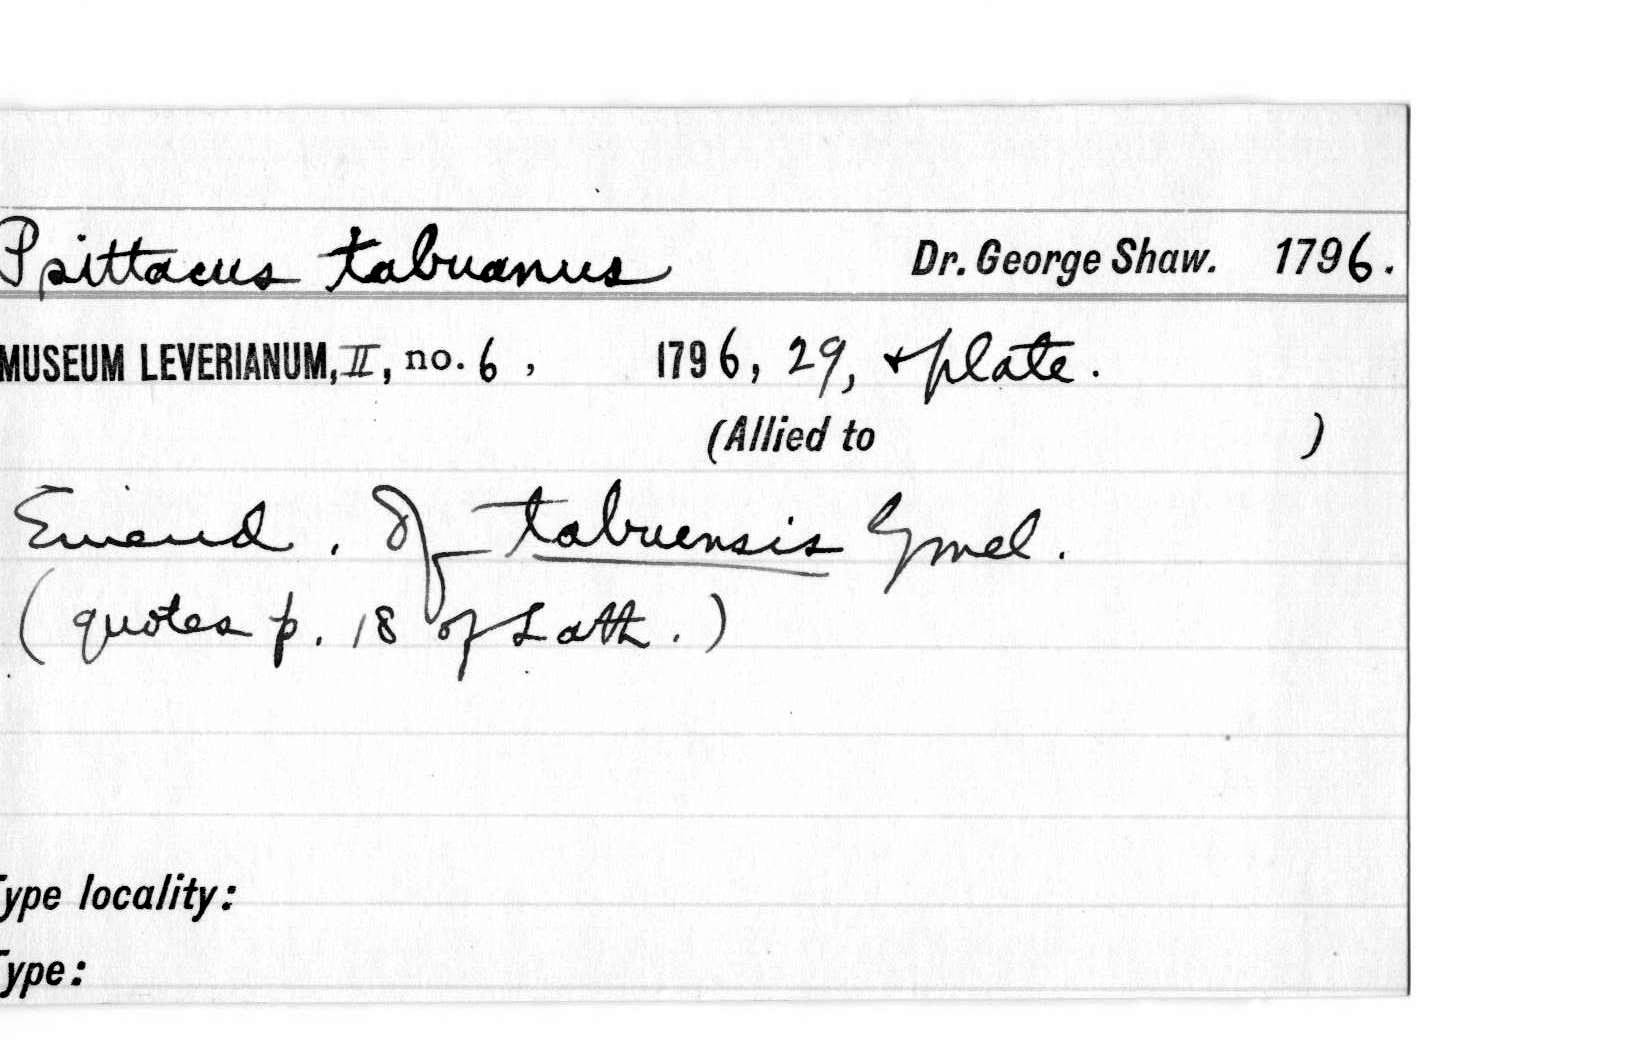 Psittacus tabuanus Dr. George Shaw. 1796.
MUSEUM LEVERIANUM, II, no. 6, 1796, 29, + plate.
(Allied to )
Emend. of tabuensis Gmel.
(quotes p. 18 of Lath.)
Type locality:
Type: